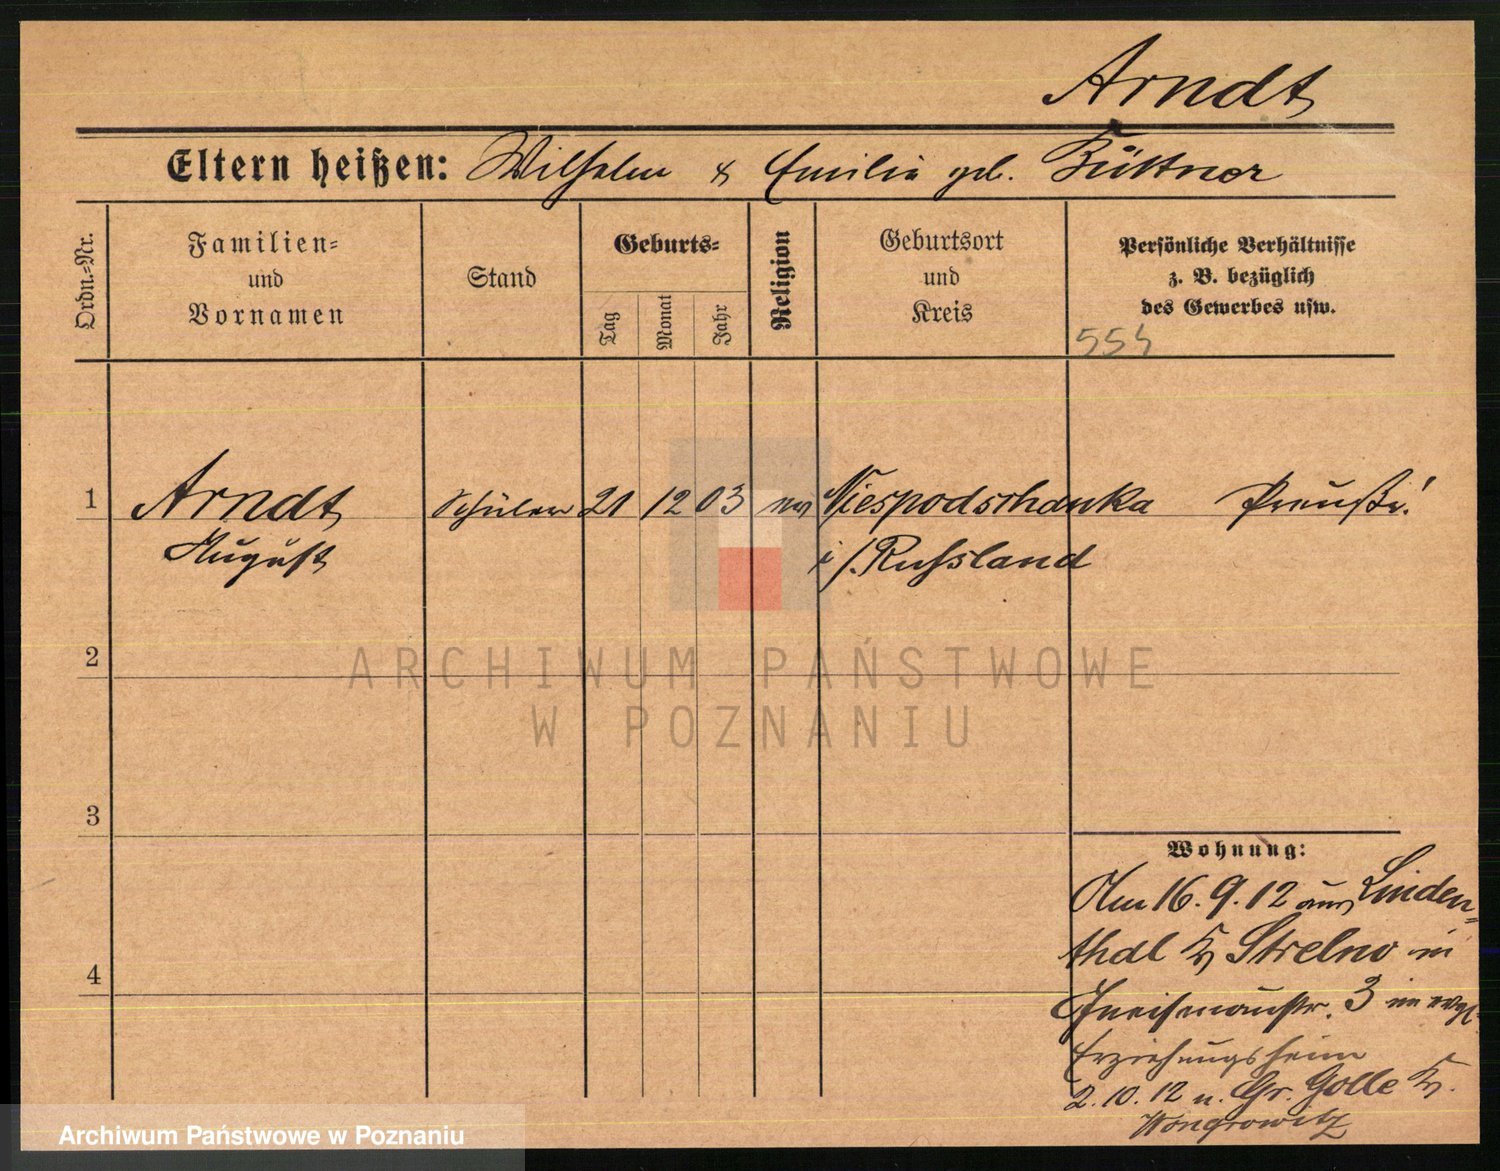 Arndt
Eltern heißen: Wilhelm & Emilie geb. Büttner
Ordn.-Nr.
Familien-
und
Vornamen
Stand
Geburts-
Tag
Monat
Jahr
Religion
Geburtsort
und
Kreis
Persönliche Verhältnisse
z. B. bezüglich
des Gewerbes usw.
554
1 Arndt Schüler 21 12 03 ev Niespodschanka Preuße!
August i/. Russland
2
ARCHIWUM PAŃSTWOWE
W POZNANIU
3
Wohnung:
Am 16. 9. 12 aus Linden-
thal Kr Strelno in
3 im evgl.
4
Erziehungsheim
2. 10. 12 n. Gr. Golle Kr.
Wongrowitz
Archiwum Państwowe w Poznaniu